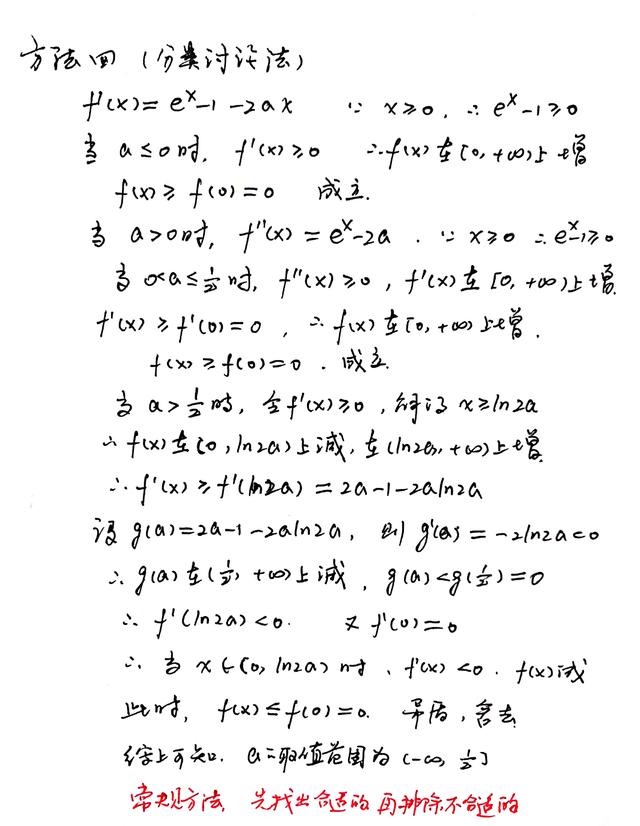 方法四（分类讨论法）
f'(x)=eˣ-1-2ax ∵ x≥0, ∴ eˣ-1≥0
当 a≤0时, f'(x)≥0 ∴f(x)在[0,+∞)上增
f(x)≥f(0)=0 成立.
当 a>0时, f''(x)=eˣ-2a. ∵ x≥0 ∴eˣ-1≥0
当 0<a≤1/2时, f''(x)≥0, f'(x)在[0,+∞)上增.
f'(x)≥f'(0)=0, ∴f(x)在[0,+∞)上增.
f(x)≥f(0)=0. 成立.
当 a>1/2时, 令f'(x)≥0, 解得 x≥ln2a
∴ f(x)在[0,ln2a)上减, 在(ln2a,+∞)上增.
∴ f'(x)≥f'(ln2a)=2a-1-2aln2a
设 g(a)=2a-1-2aln2a, 则 g'(a)=-2ln2a<0
∴ g(a)在(1/2,+∞)上减, g(a)<g(1/2)=0
∴ f'(ln2a)<0. 又 f'(0)=0
∴ 当 x∈(0,ln2a)时, f'(x)<0. f(x)减
此时, f(x)≤f(0)=0. 矛盾, 舍去
综上可知. a的取值范围为(-∞,1/2]
常规方法 先找出合适的 再排除不合适的